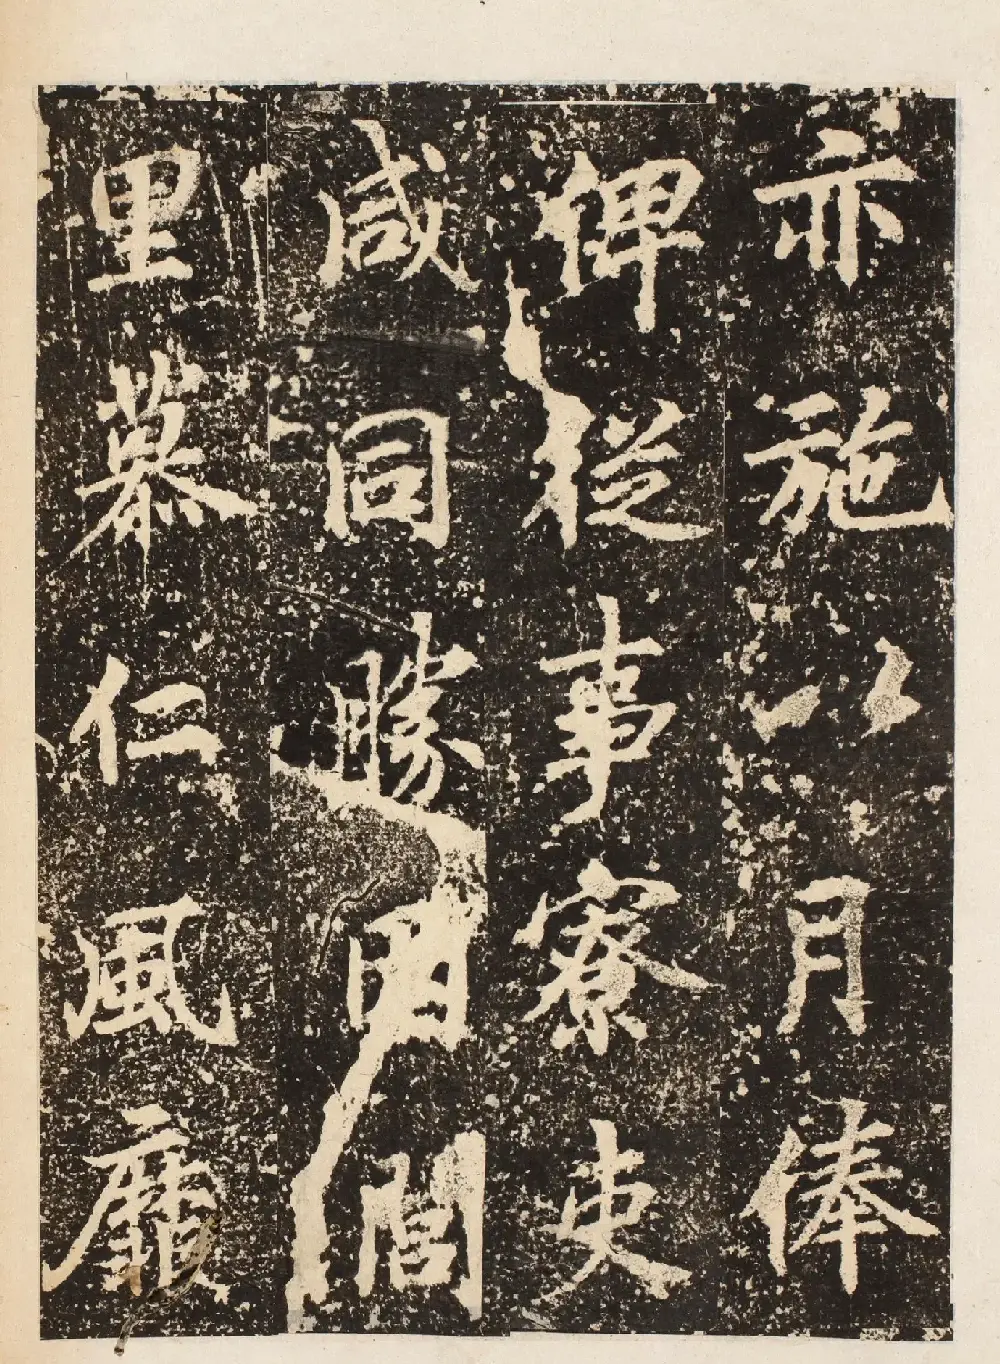 亦施以月俸
俾從事寮吏
咸同勝因閭
里慕仁風靡